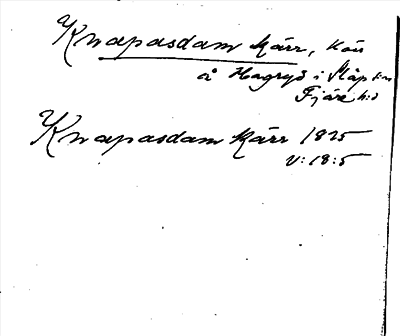 Knapasdam kärr, kärr
å Hagryd i Släp sn
Fjäre hd
Knapasdam kärr 1825
V: 18:5